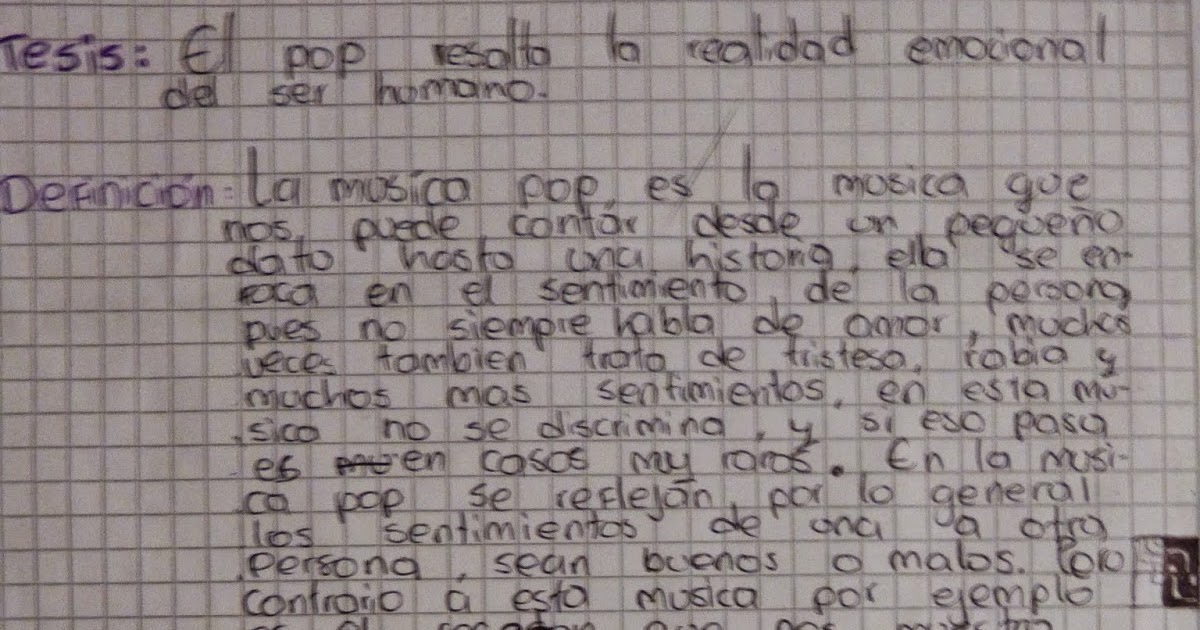 Tesis: El pop resalta la realidad emocional
del ser humano.
Definición: La musica pop, es la musica que
nos, puede contar desde un pequeño
dato hasta una historia, ella se en-
foca en el sentimiento, de la persona
pues no siempre habla de amor, muchas
veces tambien trata de tristesa, rabia y
muchos mas sentimientos, en esta mu-
sica no se discrimina, y si eso pasa
es en casos muy raros. En la musi-
ca pop se reflejan, por lo general
los sentimientos de una a otra
persona, sean buenos o malos.
contrario a esta musica por ejemplo